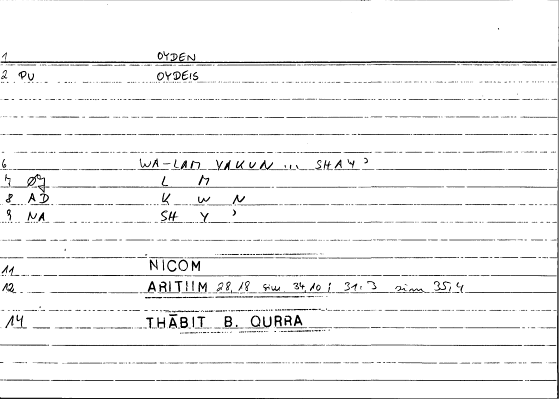 1 OYDEN
2 PU OYDEIS
6 WA-LAM YAKUN ... SHAY'
7 L M
8 AD K W N
9 NA SH Y '
11 NICOM
12 ARITIIM 28,18 sim 34,10; 31,3 sim 35,4
14 THĀBIT B. QURRA